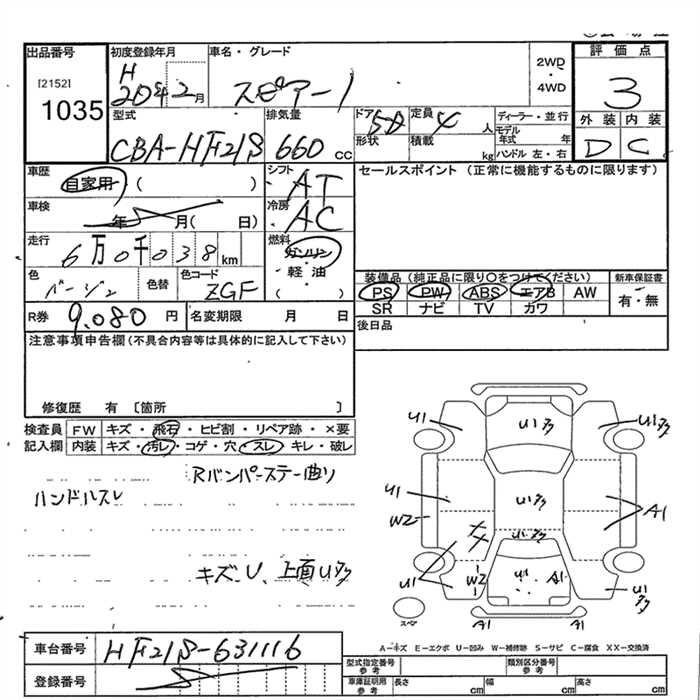 出品番号
[2152]
1035
初度登録年月
H
20年2月
車名・グレード
スピアーノ
2WD
・
4WD
評価点
3
外装 内装
D C
型式
CBA-HF21S
排気量
660 cc
ドア 5D
形状
定員 4 人
積載 kg
ディーラー・並行
モデル年式 年
ハンドル 左・右
車歴
自家用 ( )
シフト
AT
セールスポイント (正常に機能するものに限ります)
車検
年 月( 日)
冷房
AC
走行
6万0千038km
燃料
ガソリン
軽油
( )
色
ベージュ
色替
色コード
ZGF
装備品 (純正品に限り○をつけてください)
PS PW ABS エアB AW
SR ナビ TV カワ
新車保証書
有・無
R券
9,080 円
名変期限 月 日
後日品
注意事項申告欄(不具合内容等は具体的に記入して下さい)
修復歴 有 〔箇所 〕
検査員 FW キズ・飛石・ヒビ割・リペア跡・×要
記入欄 内装 キズ・汚レ・コゲ・穴・スレ・キレ・破レ
Rバンパーステー曲り
ハンドルスレ
キズ・U、上面U多
U1 U1多 U1多
U1 U1多 A1
W2
U1多
U1 W2 U1 A1 U1多
スペア A1 A1
A-キズ E-エクボ U-凹み W-補修跡 S-サビ C-腐食 XX-交換済
車台番号
HF21S-631116
登録番号
型式指定番号
参考
類別区分番号
参考
車庫証明用
参考
長さ cm 幅 cm 高さ cm